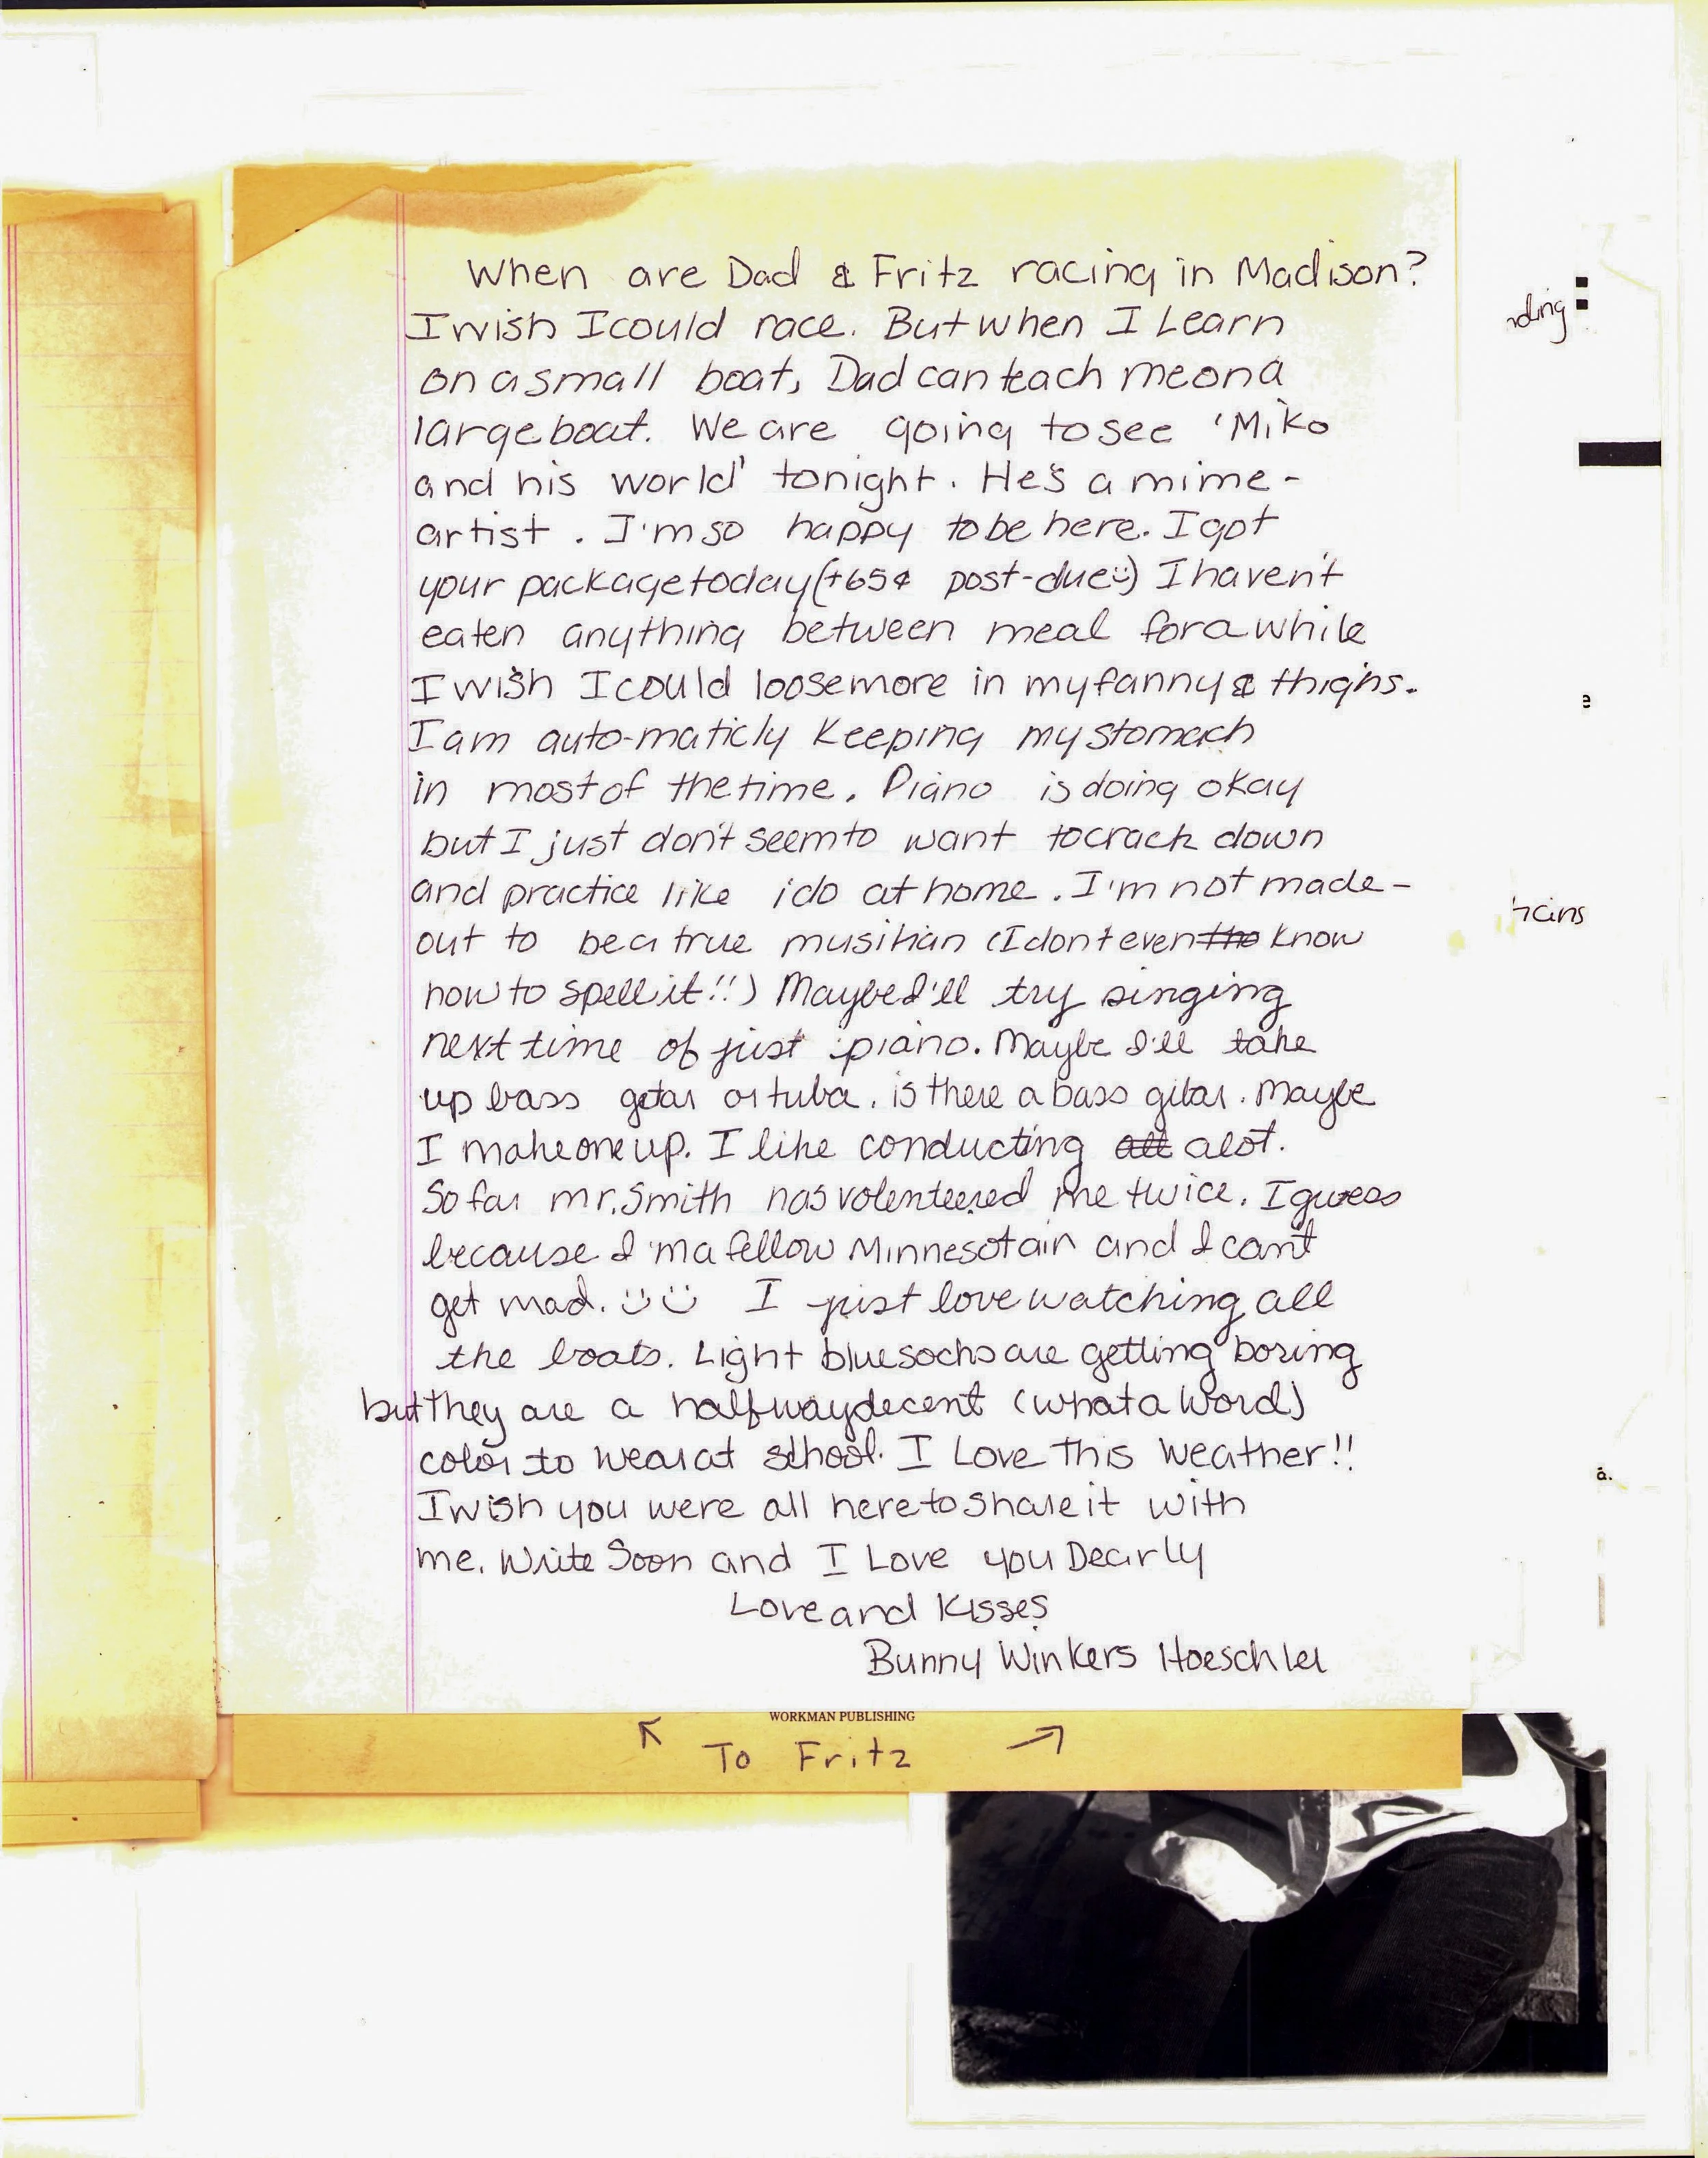 When are Dad & Fritz racing in Madison?
I wish I could race. But when I Learn
on a small boat, Dad can teach me on a
large boat. We are going to see 'Miko
and his world' tonight. He's a mime-
artist. I'm so happy to be here. I got
your package today (+65¢ post-due :) I haven't
eaten anything between meal for a while
I wish I could loose more in my fanny & thighs.
I am auto-maticly keeping my stomach
in most of the time. Piano is doing okay
but I just don't seem to want to crack down
and practice like i do at home. I'm not made-
out to be a true musihian (I dont even tho know
how to spell it!!) Maybe I'll try singing
next time of just piano. Maybe I'll take
up bass gitar or tuba. is there a bass gitar. Maybe
I make one up. I like conducting all alot.
So far mr. Smith has volenteered me twice. I guess
because I'm a fellow Minnesotain and I can't
get mad. :) :) I just love watching all
the boats. Light blue socks are getting boring
but they are a halfway decent (what a word)
color to wear at school. I Love This weather!!
I wish you were all here to share it with
me. Write Soon and I Love you Dearly
Love and Kisses
Bunny Winkers Hoeschler
WORKMAN PUBLISHING
↖ To Fritz ↗
nding
e
hains
a.